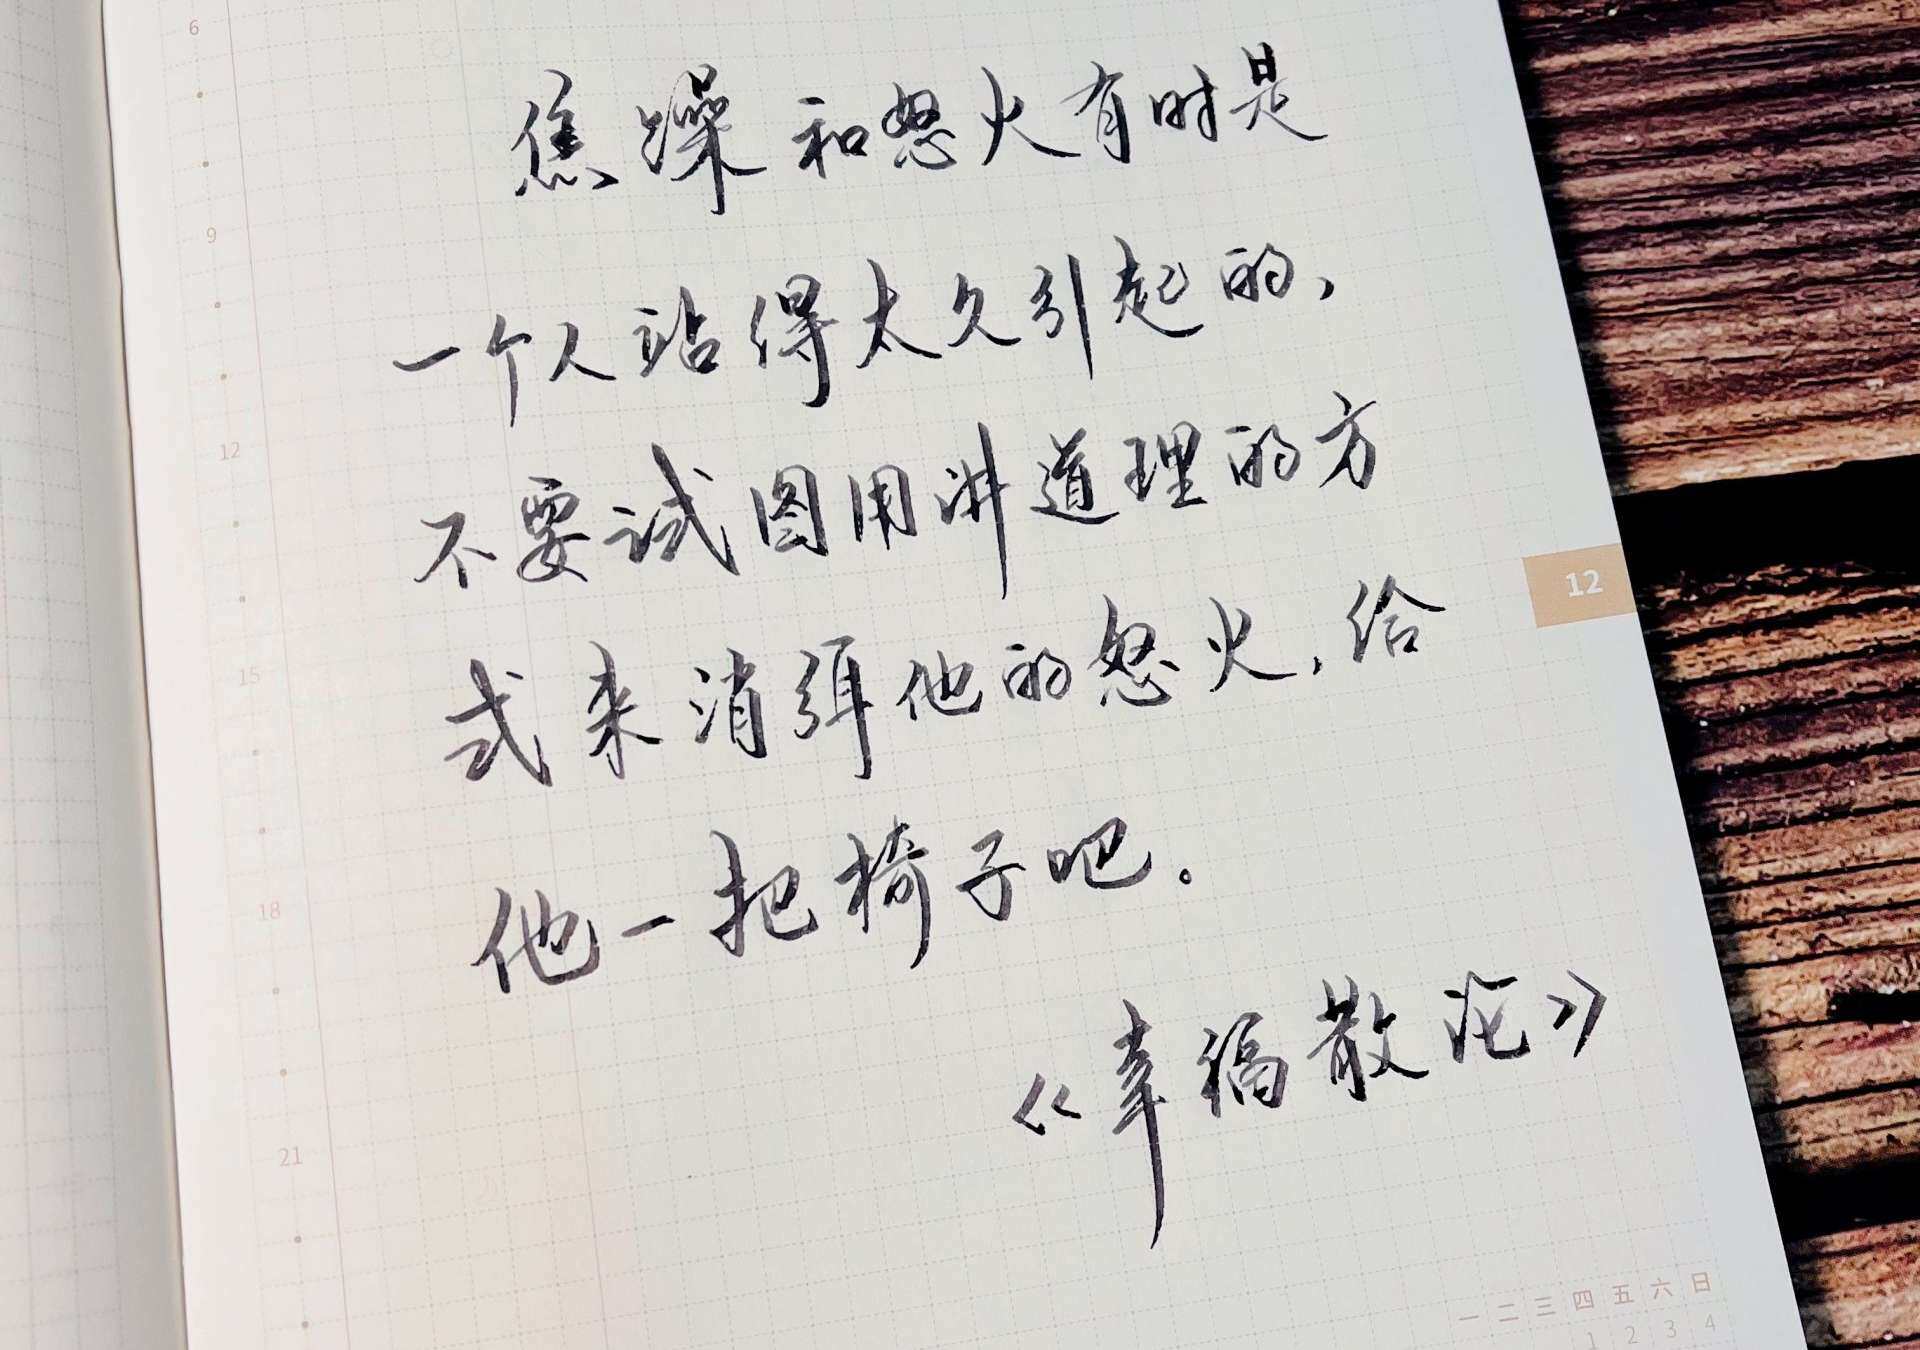 6
焦躁和怒火有时是
9
一个人站得太久引起的，
12
不要试图用讲道理的方
12
式来消弭他的怒火，给
15
他一把椅子吧。
18
《幸福散论》
21
一 二 三 四 五 六 日
1 2 3 4